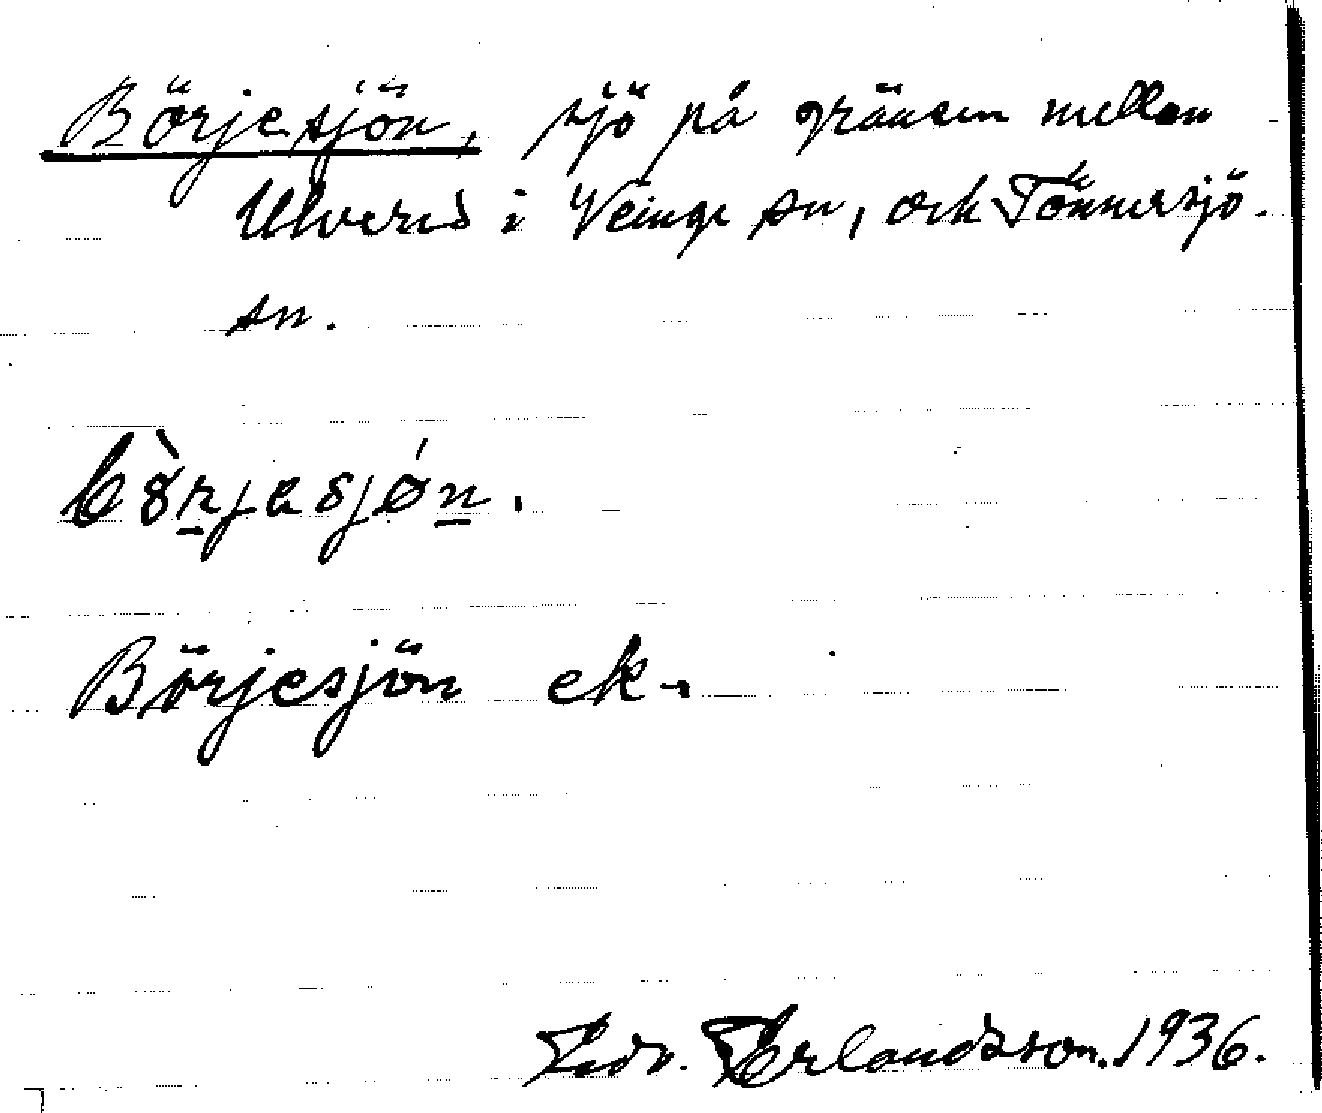 Börjesjön, sjö på gränsen mellan
Ulvered i Veinge sn, och Tönnersjö
sn.
Börjesjön ek.
Edv. Erlandsson. 1936.